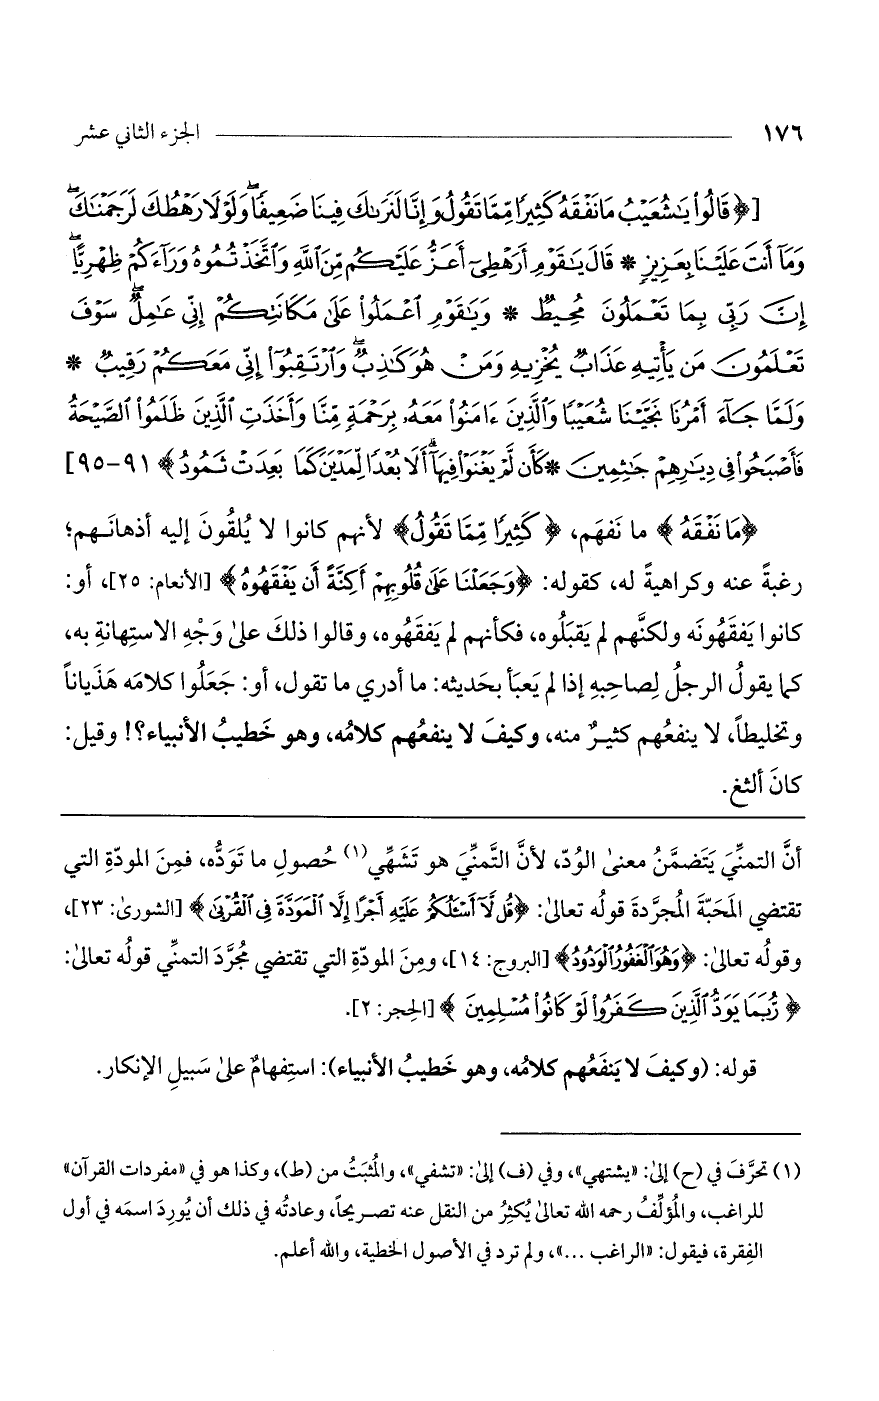 ١٧٦ الجزء الثاني عشر
[﴿قَالُوا۟ يَـٰشُعَيْبُ مَا نَفْقَهُ كَثِيرًا مِّمَّا تَقُولُ وَإِنَّا لَنَرَىٰكَ فِينَا ضَعِيفًا ۖ وَلَوْلَا رَهْطُكَ لَرَجَمْنَـٰكَ ۖ
وَمَآ أَنتَ عَلَيْنَا بِعَزِيزٍ * قَالَ يَـٰقَوْمِ أَرَهْطِىٓ أَعَزُّ عَلَيْكُم مِّنَ ٱللَّهِ وَٱتَّخَذْتُمُوهُ وَرَآءَكُمْ ظِهْرِيًّا ۖ
إِنَّ رَبِّى بِمَا تَعْمَلُونَ مُحِيطٌ * وَيَـٰقَوْمِ ٱعْمَلُوا۟ عَلَىٰ مَكَانَتِكُمْ إِنِّى عَـٰمِلٌ ۖ سَوْفَ
تَعْلَمُونَ مَن يَأْتِيهِ عَذَابٌ يُخْزِيهِ وَمَنْ هُوَ كَـٰذِبٌ ۖ وَٱرْتَقِبُوٓا۟ إِنِّى مَعَكُمْ رَقِيبٌ *
وَلَمَّا جَآءَ أَمْرُنَا نَجَّيْنَا شُعَيْبًا وَٱلَّذِينَ ءَامَنُوا۟ مَعَهُۥ بِرَحْمَةٍ مِّنَّا وَأَخَذَتِ ٱلَّذِينَ ظَلَمُوا۟ ٱلصَّيْحَةُ
فَأَصْبَحُوا۟ فِى دِيَـٰرِهِمْ جَـٰثِمِينَ * كَأَن لَّمْ يَغْنَوْا۟ فِيهَآ ۗ أَلَا بُعْدًا لِّمَدْيَنَ كَمَا بَعِدَتْ ثَمُودُ﴾ ٩١-٩٥]
﴿مَا نَفْقَهُ﴾ ما نَفهَم، ﴿كَثِيرًا مِّمَّا تَقُولُ﴾ لأنهم كانوا لا يُلقُونَ إليه أذهانَـهم؛
رغبةً عنه وكراهيةً له، كقوله: ﴿وَجَعَلْنَا عَلَىٰ قُلُوبِهِمْ أَكِنَّةً أَن يَفْقَهُوهُ﴾ [الأنعام: ٢٥]، أو:
كانوا يَفقَهُونَه ولكنَّهم لم يَقبَلُوه، فكأنهم لم يَفقَهُوه، وقالوا ذلكَ علىٰ وَجْهِ الاستِهانةِ به،
كما يقولُ الرجلُ لِصاحِبِهِ إذا لم يَعبَأ بحَديثه: ما أدري ما تقول، أو: جَعَلُوا كلامَه هَذَياناً
وتخليطاً، لا ينفعُهم كثيـرٌ منه، وكيفَ لا ينفعُهم كلامُه، وهو خَطيبُ الأنبياء؟! وقيل:
كانَ ألثغ.
أنَّ التمنِّيَ يَتَضمَّنُ معنىٰ الوُدّ، لأنَّ التَّمنِّيَ هو تَشَهِّي(١) حُصولِ ما تَوَدُّه، فمِنَ المودّةِ التي
تقتضي المَحَبّةَ المُجرَّدةَ قولُه تعالىٰ: ﴿قُل لَّآ أَسْـَٔلُكُمْ عَلَيْهِ أَجْرًا إِلَّا ٱلْمَوَدَّةَ فِى ٱلْقُرْبَىٰ﴾ [الشورىٰ: ٢٣]،
وقولُه تعالىٰ: ﴿وَهُوَ ٱلْغَفُورُ ٱلْوَدُودُ﴾ [البروج: ١٤]، ومِنَ المودّةِ التي تقتضي مُجرَّدَ التمنِّي قولُه تعالىٰ:
﴿رُّبَمَا يَوَدُّ ٱلَّذِينَ كَفَرُوا۟ لَوْ كَانُوا۟ مُسْلِمِينَ﴾ [الحِجر: ٢].
قوله: (وكيفَ لا يَنفَعُهم كلامُه، وهو خَطيبُ الأنبياء): استِفهامٌ علىٰ سَبيلِ الإنكار.
(١) تحرَّفَ في (ح) إلىٰ: «يشتهي»، وفي (ف) إلىٰ: «تشفي»، والمُثبَتُ من (ط)، وكذا هو في «مفردات القرآن»
للراغب، والمُؤلِّفُ رحمه الله تعالىٰ يُكثِرُ من النقل عنه تصـريحاً، وعادتُه في ذلك أن يُورِدَ اسمَه في أول
الفِقرة، فيقول: «الراغب ...»، ولم ترد في الأصول الخطية، والله أعلم.